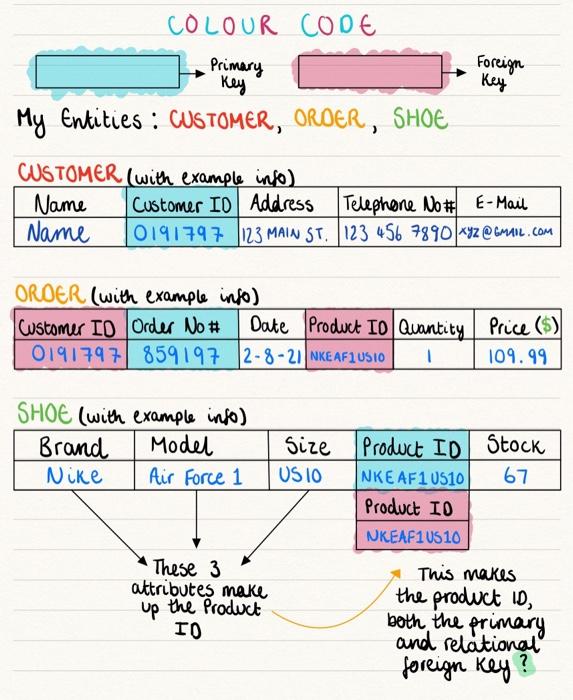 COLOUR CODE
Primary Key
Foreign Key
My Entities : CUSTOMER, ORDER, SHOE
CUSTOMER (with example info)
Name Customer ID Address Telephone No# E-Mail
Name 0191797 123 MAIN ST. 123 456 7890 xyz@GMAIL.COM
ORDER (with example info)
Customer ID Order No# Date Product ID Quantity Price ($)
0191797 859197 2-8-21 NKEAF1US10 1 109.99
SHOE (with example info)
Brand Model Size Product ID Stock
Nike Air Force 1 US10 NKEAF1US10 67
Product ID
NKEAF1US10
These 3
attributes make
up the Product
ID
This makes
the product ID,
both the primary
and relational
foreign key ?